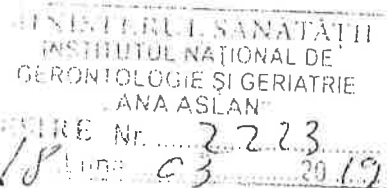 MINISTERUL SANATATII
INSTITUTUL NAȚIONAL DE
GERONTOLOGIE ȘI GERIATRIE
"ANA ASLAN"
Nr. 2223
18 Luna 03 2019